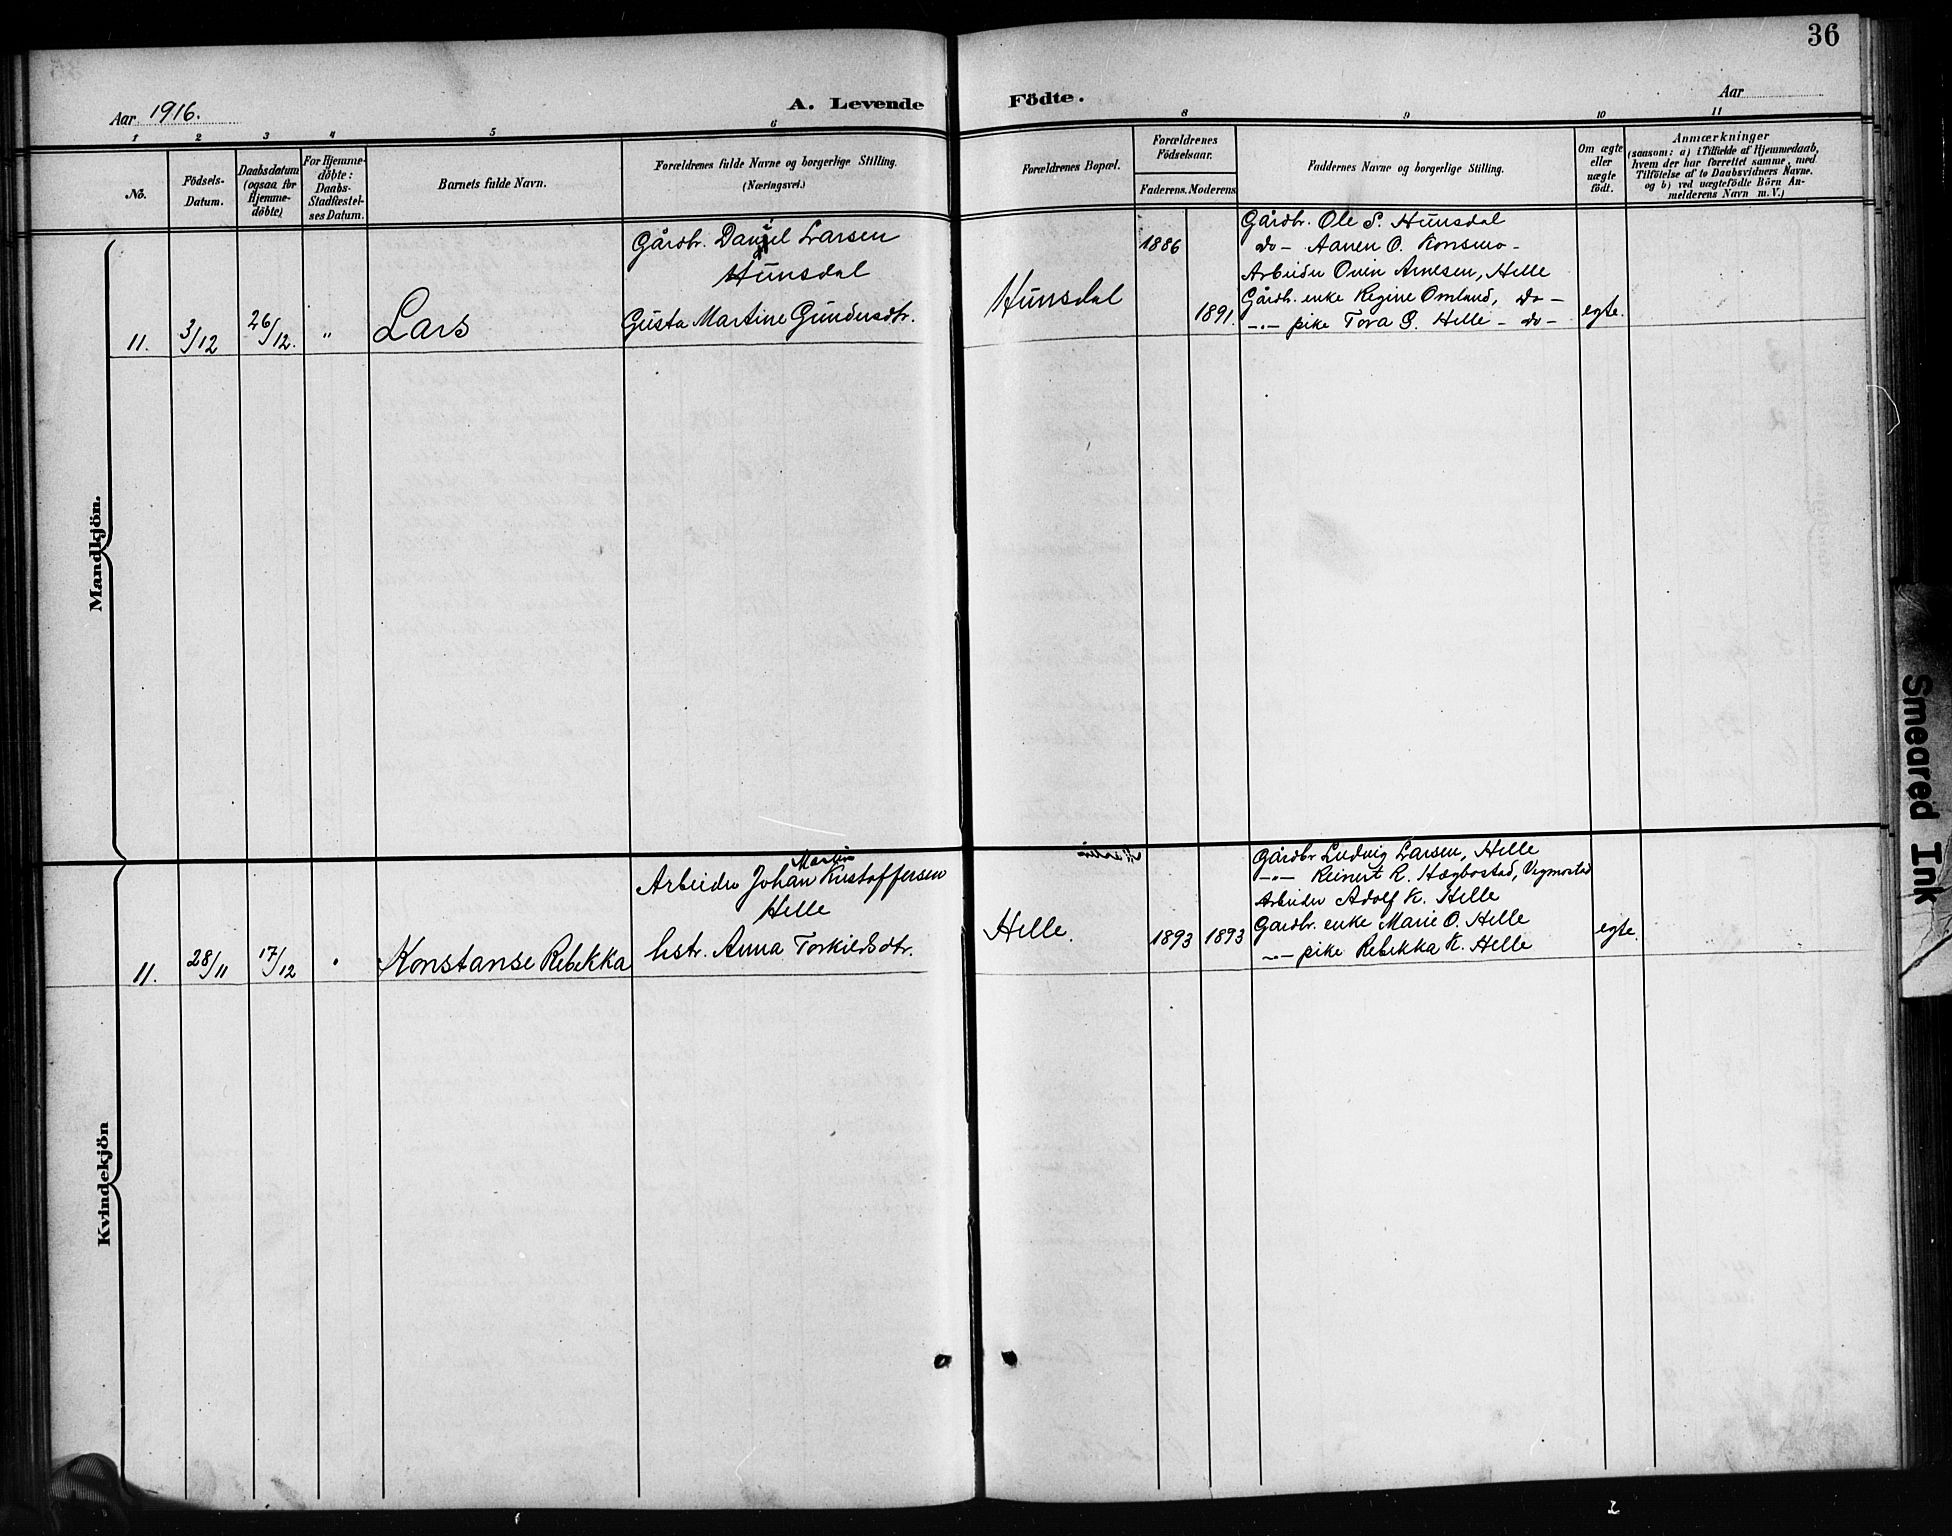 36
Aar 1916.
A. Levende Födte.
Aar
1 2 3 4 5 6 8 9 10 11
No.
Födsels-Datum.
Daabsdatum (ogsaa for Hjemme-döbte)
For Hjemme-döbte: Daabs-Stadfæstel-ses Datum.
Barnets fulde Navn.
Forældrenes fulde Navne og borgerlige Stilling. (Næringsvei.)
Forældrenes Bopæl.
Forældrenes Födselsaar.
Faderens. Moderens.
Faddernes Navne og borgerlige Stilling.
Om ægte eller uægte födt.
Anmærkninger
(saasom: a) i Tilfælde af Hjemmedaab,
hvem der har forrettet samme, med
Tilföielse af to Daabsvidners Navne.
og b) ved uægtefödte Börn An-
melderens Navn m. V.)
Mandkjön.
11.
3/12
26/12.
"
Lars
Gårdbr. Daniel Larsen
Hunsdal
Gusta Martine Gundersdtr.
Hunsdal
1886
1891.
Gårdbr. Ole S. Hunsdal
do - Aanen O. Konsmo -
Arbeider Ovin Arnesen, Helle
Gårdb. enke Regine Omland, do -
-"- pike Tora G. Helle - do -
egte.
Kvindekjön
11.
28/11
17/12
Konstanse Rebekka
Martin
Arbeider Johan Kristoffersen
Helle
hstr. Anna Torkildsdtr.
Helle.
1893
1893
Gårdbr Ludvig Larsen, Helle
-"- Reinert R. Hægbostad, Vigmostad
Arbeider Adolf K. Helle
Gardbr. enke Marie O. Helle
-"- pike Rebekka K. Helle
egte.
Smeared Ink